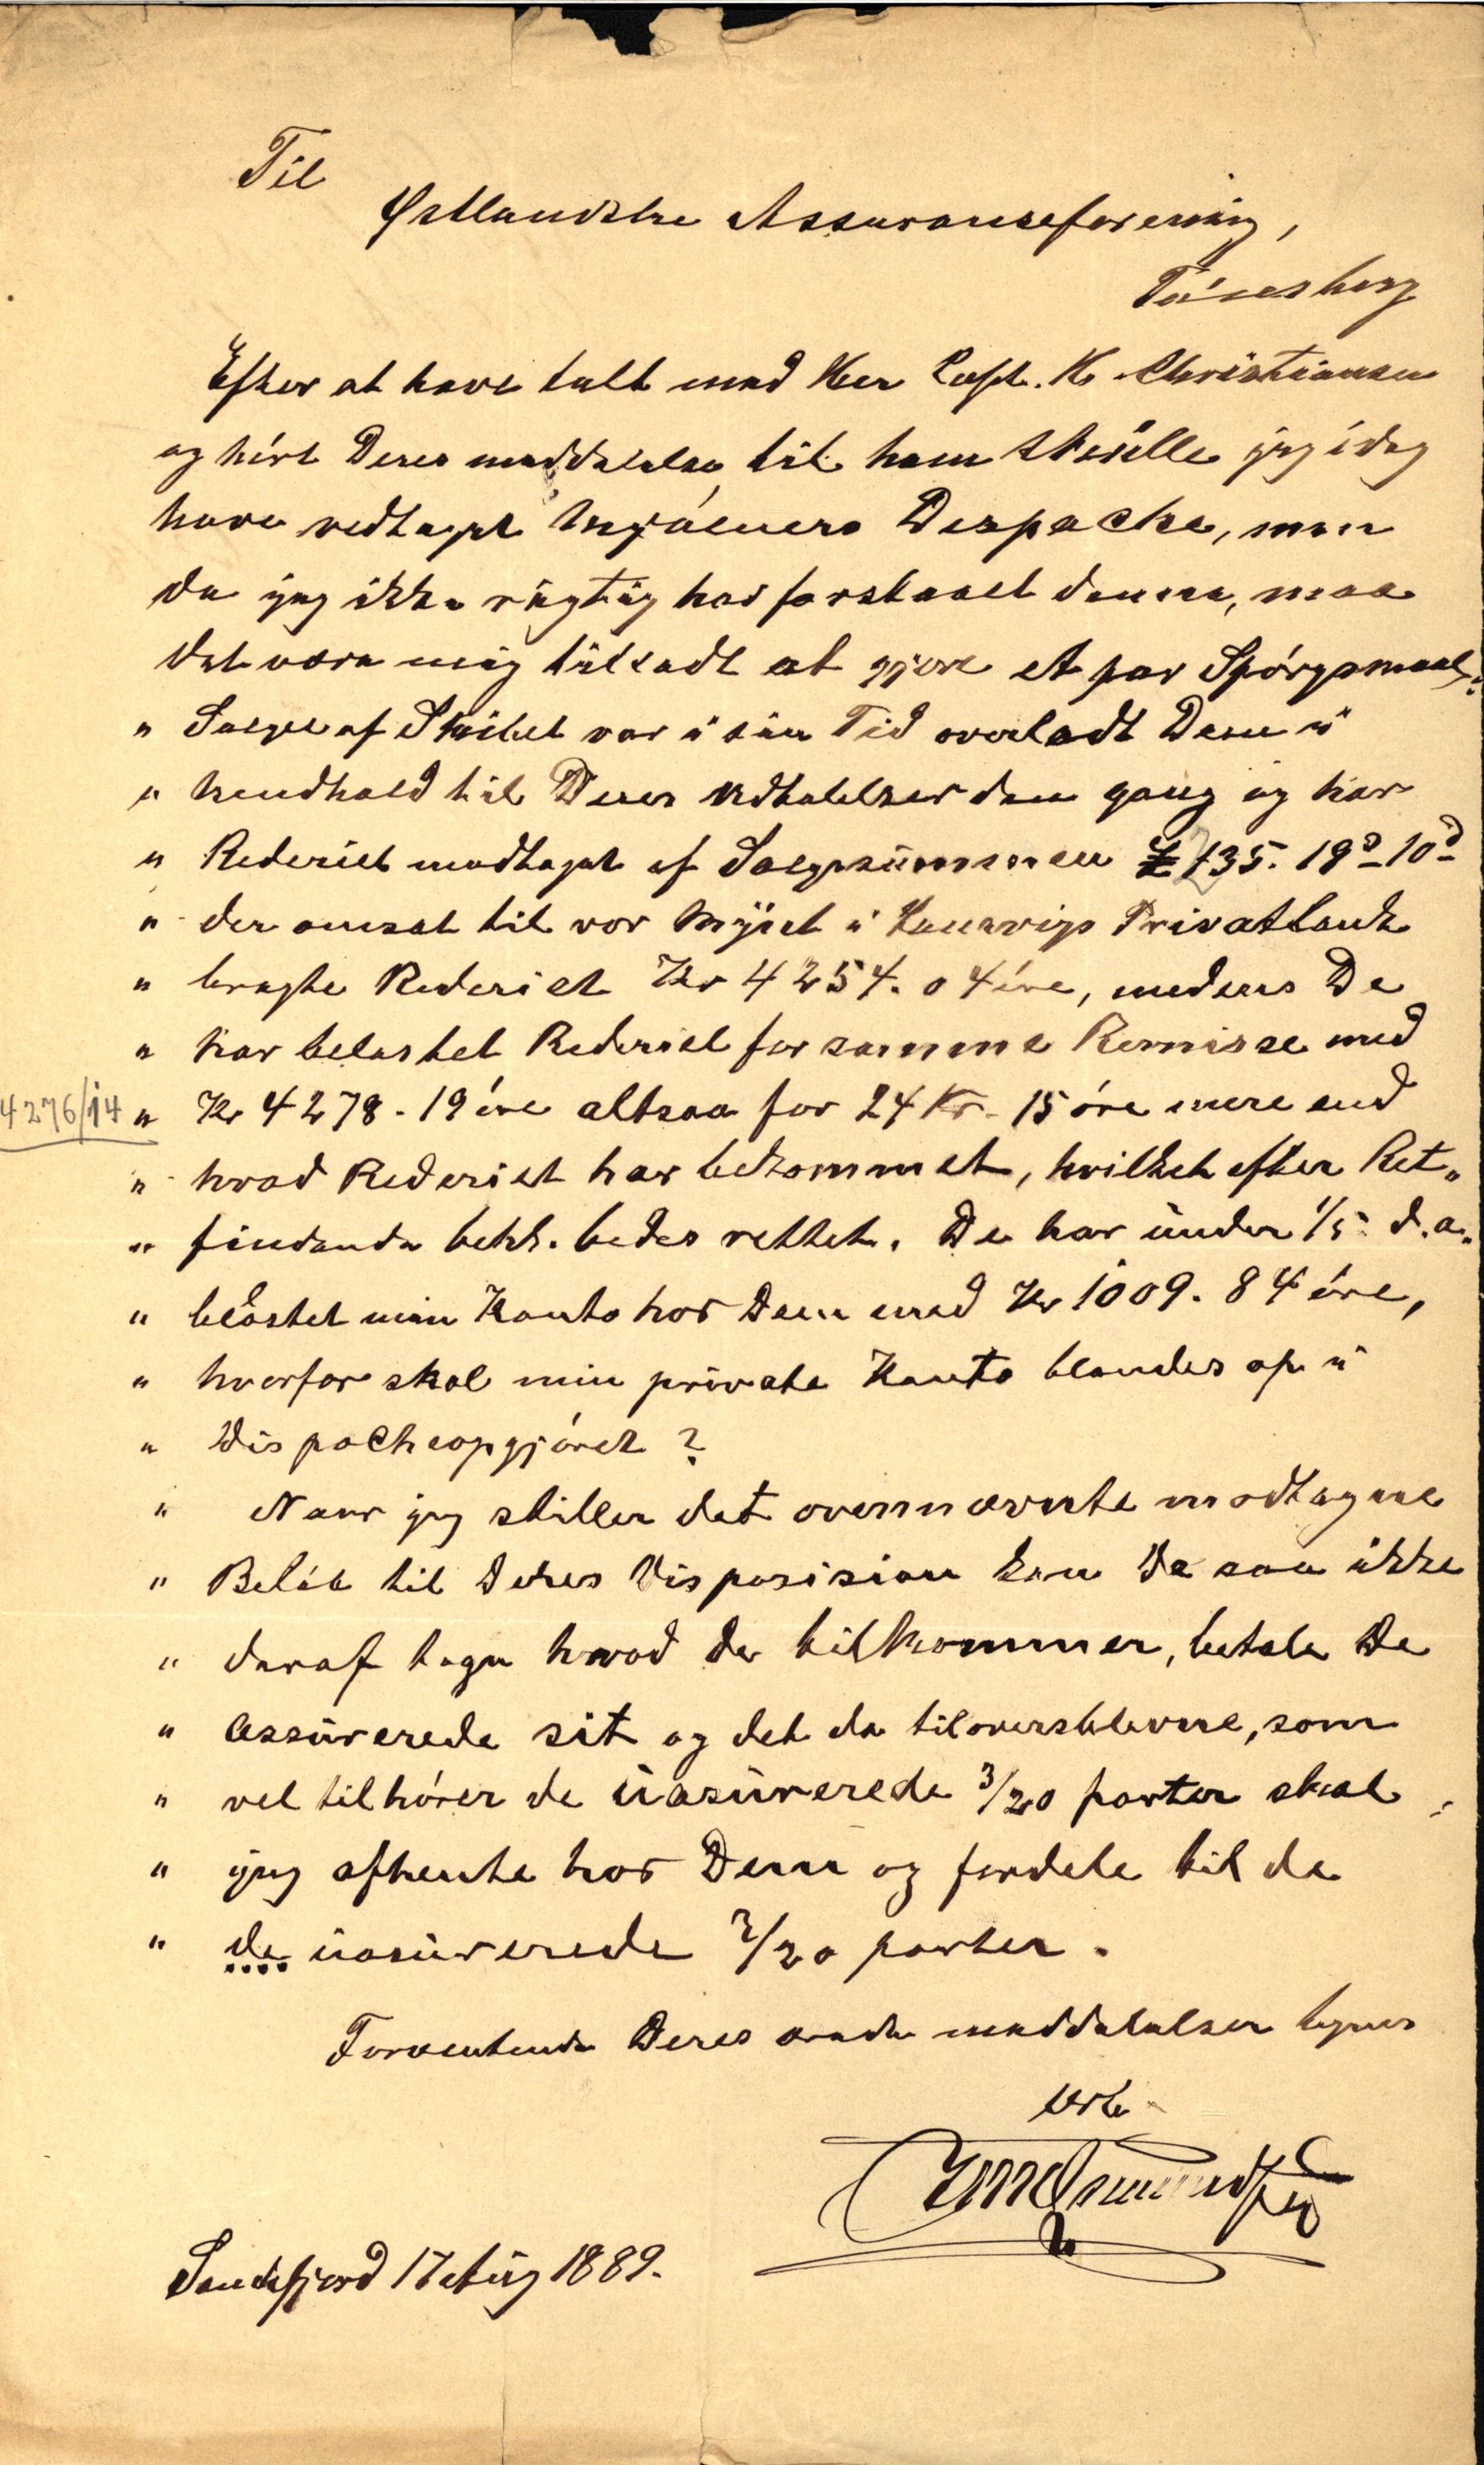 Til
Østlandske Assuranceforening,
Tönsberg
Efter at have talt med Herr Capt. K. Christiansen
og hört Deres meddelelse til ham skulle jeg idag
have vedtaget Mjölners Despache, men
da jeg ikke rigtig har forstaaet denne, maa
det være mig tilladt at gjöre et par Spörgsmaal:
" Salget af Skibet var i sin Tid overladt Dem i
" hendhold til Deres udtalelser den gang og har
" Rederiet modtaget af Salgssummen £ 235. 19s 10d
" der omsat til vor Mynt i Laurvigs Privatbank
" bragte Rederiet Kr 4254. 04 öre, medens De
" har belastet Rederiet for samme Remisse med
4276/14 " Kr 4278. 19 öre altsaa for 24 Kr. 15 öre mere end
" hvad Rederiet har bekommet, hvilket efter Ret„
" findende behh. bedes rettet. De har under 1/5 d.a.
" belastet min Konto hos Dem med Kr 1009. 84 öre,
" hvorfor skal min private Konto blandes op i
" Dispacheopgjöret?
" Naar jeg stiller det ovennævnte modtagne
" Belöb til Deres Disposision kan De saa ikke
" deraf tage hvad der tilkommer, betale De
" assurerede sit og det da tiloversblevne, som
" vel tilhörer de uasurerede 3/20 parter skal
" jeg afhente hos Dem og fordele til de
" de uasurerede 3/20 parter.
Forventende Deres ærede meddelelser tegner
ærb.
Sandefjord 17 Aug 1889.